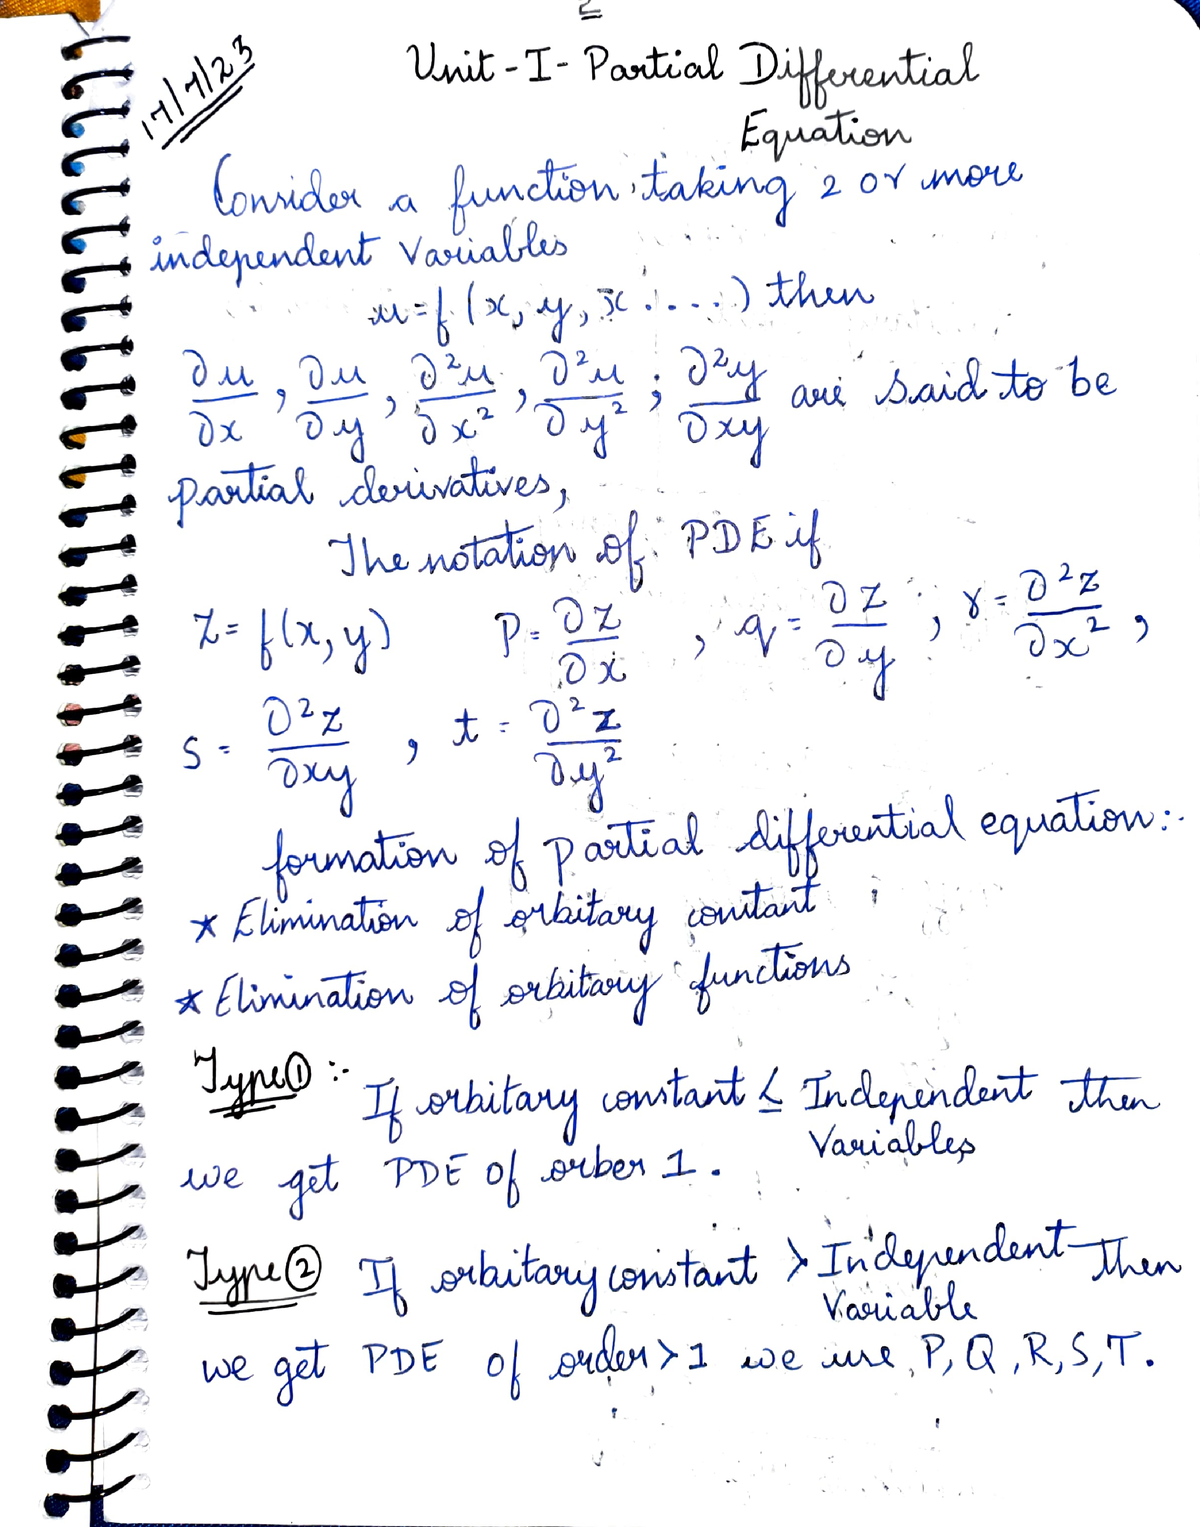 2
17/7/23
Unit - I - Partial Differential
Equation
Consider a function, taking 2 or more
independent variables
u = f (x, y, x .....) then
∂u/∂x , ∂u/∂y , ∂²u/∂x² , ∂²u/∂y² ; ∂²y/∂xy are said to be
partial derivatives,
The notation of PDE if
Z = f(x, y) P = ∂z/∂x , q = ∂z/∂y , r = ∂²z/∂x² ,
S = ∂²z/∂xy , t = ∂²z/∂y²
formation of partial differential equation:-
* Elimination of orbitary constant
* Elimination of orbitary functions
Type ① :- If orbitary constant ≤ Independent then
Variables
we get PDE of orber 1.
Type ② If orbitary constant > Independent then
Variable
we get PDE of order > 1 we use, P, Q, R, S, T.